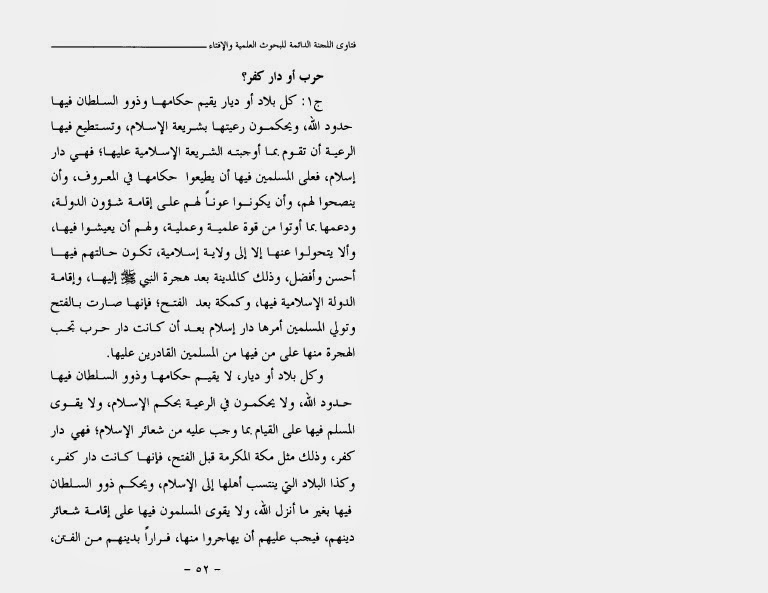 فتاوى اللجنة الدائمة للبحوث العلمية والإفتاء
حرب أو دار كفر؟
ج١: كل بلاد أو ديار يقيم حكامها وذوو السلطان فيها
حدود الله، ويحكمون رعيتها بشريعة الإسلام، وتستطيع فيها
الرعية أن تقوم بما أوجبته الشريعة الإسلامية عليها؛ فهي دار
إسلام، فعلى المسلمين فيها أن يطيعوا حكامها في المعروف، وأن
ينصحوا لهم، وأن يكونوا عوناً لهم على إقامة شؤون الدولة،
ودعمها بما أوتوا من قوة علمية وعملية، ولهم أن يعيشوا فيها،
وألا يتحولوا عنها إلا إلى ولاية إسلامية، تكون حالتهم فيها
أحسن وأفضل، وذلك كالمدينة بعد هجرة النبي ﷺ إليها، وإقامة
الدولة الإسلامية فيها، وكمكة بعد الفتح؛ فإنها صارت بالفتح
وتولي المسلمين أمرها دار إسلام بعد أن كانت دار حرب تجب
الهجرة منها على من فيها من المسلمين القادرين عليها.
وكل بلاد أو ديار، لا يقيم حكامها وذوو السلطان فيها
حدود الله، ولا يحكمون في الرعية بحكم الإسلام، ولا يقوى
المسلم فيها على القيام بما وجب عليه من شعائر الإسلام؛ فهي دار
كفر، وذلك مثل مكة المكرمة قبل الفتح، فإنها كانت دار كفر،
وكذا البلاد التي ينتسب أهلها إلى الإسلام، ويحكم ذوو السلطان
فيها بغير ما أنزل الله، ولا يقوى المسلمون فيها على إقامة شعائر
دينهم، فيجب عليهم أن يهاجروا منها، فراراً بدينهم من الفتن،
- ٥٢ -